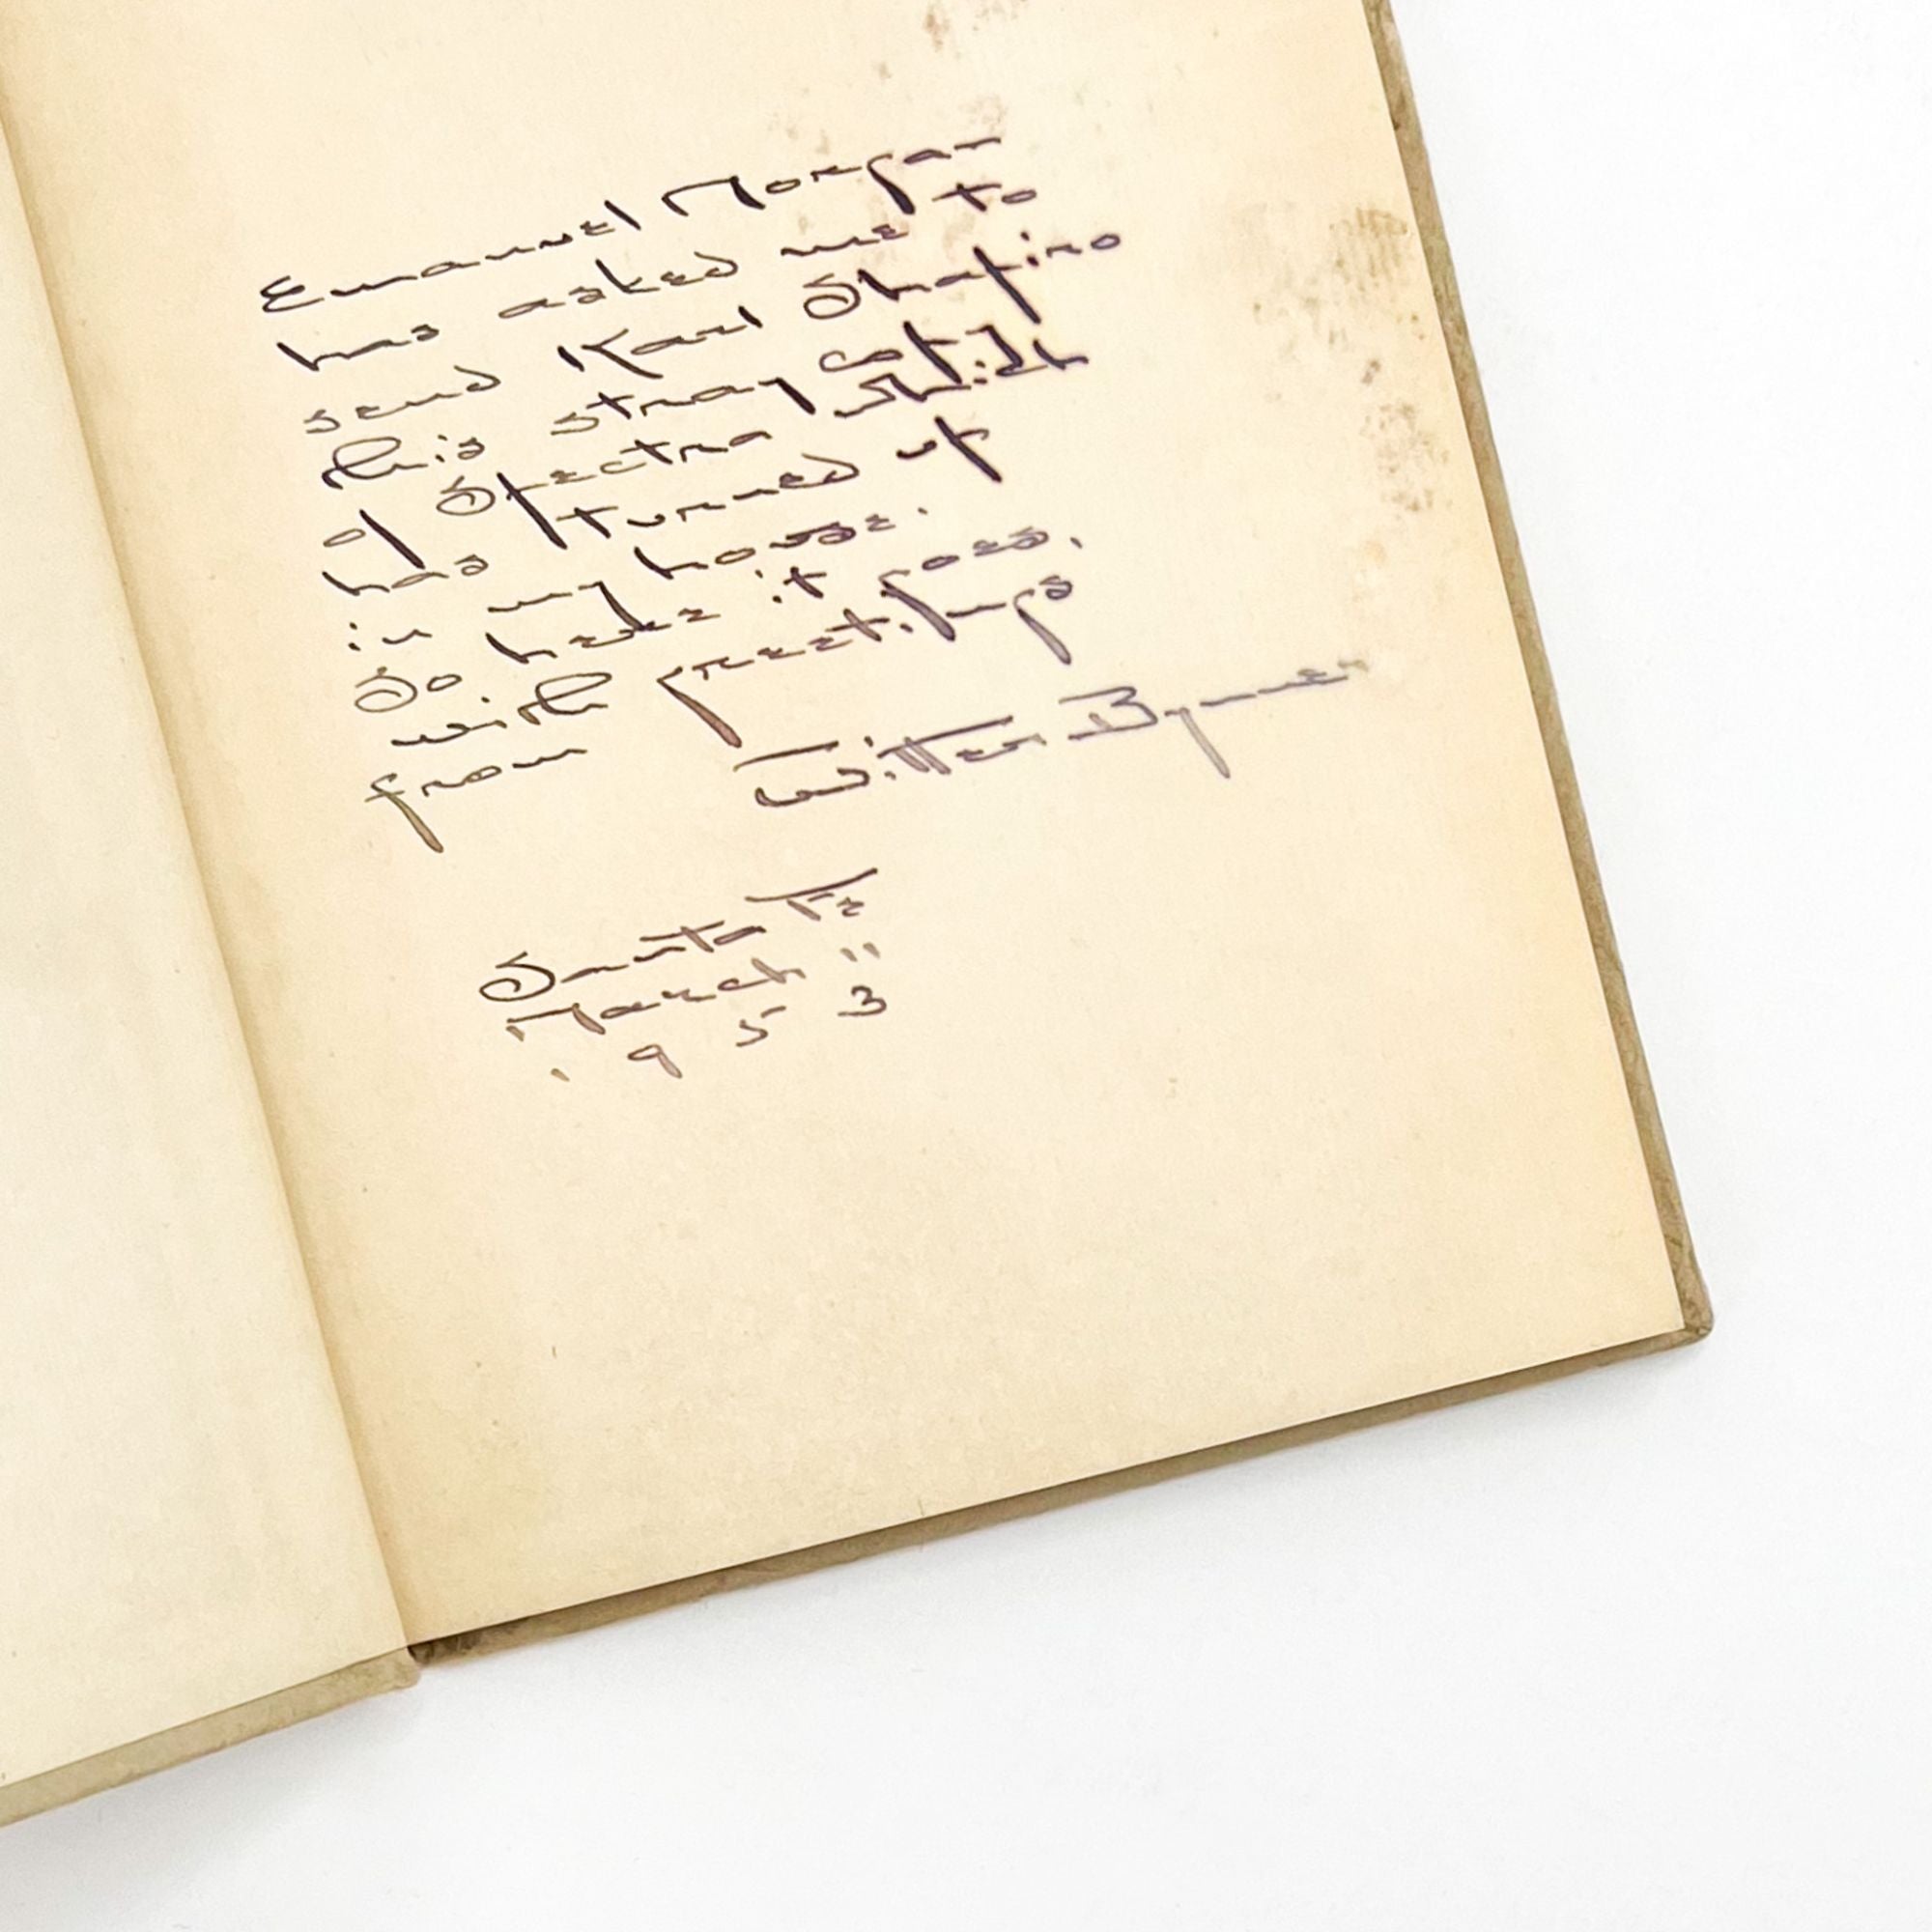 Emanuel Morgan
has asked me to
send Karl Shapiro
this stray copy
of Spectra which
has turned up
in my house.
So here it goes,
with greetings
from
Witter Bynner
Santa Fe
11
1953